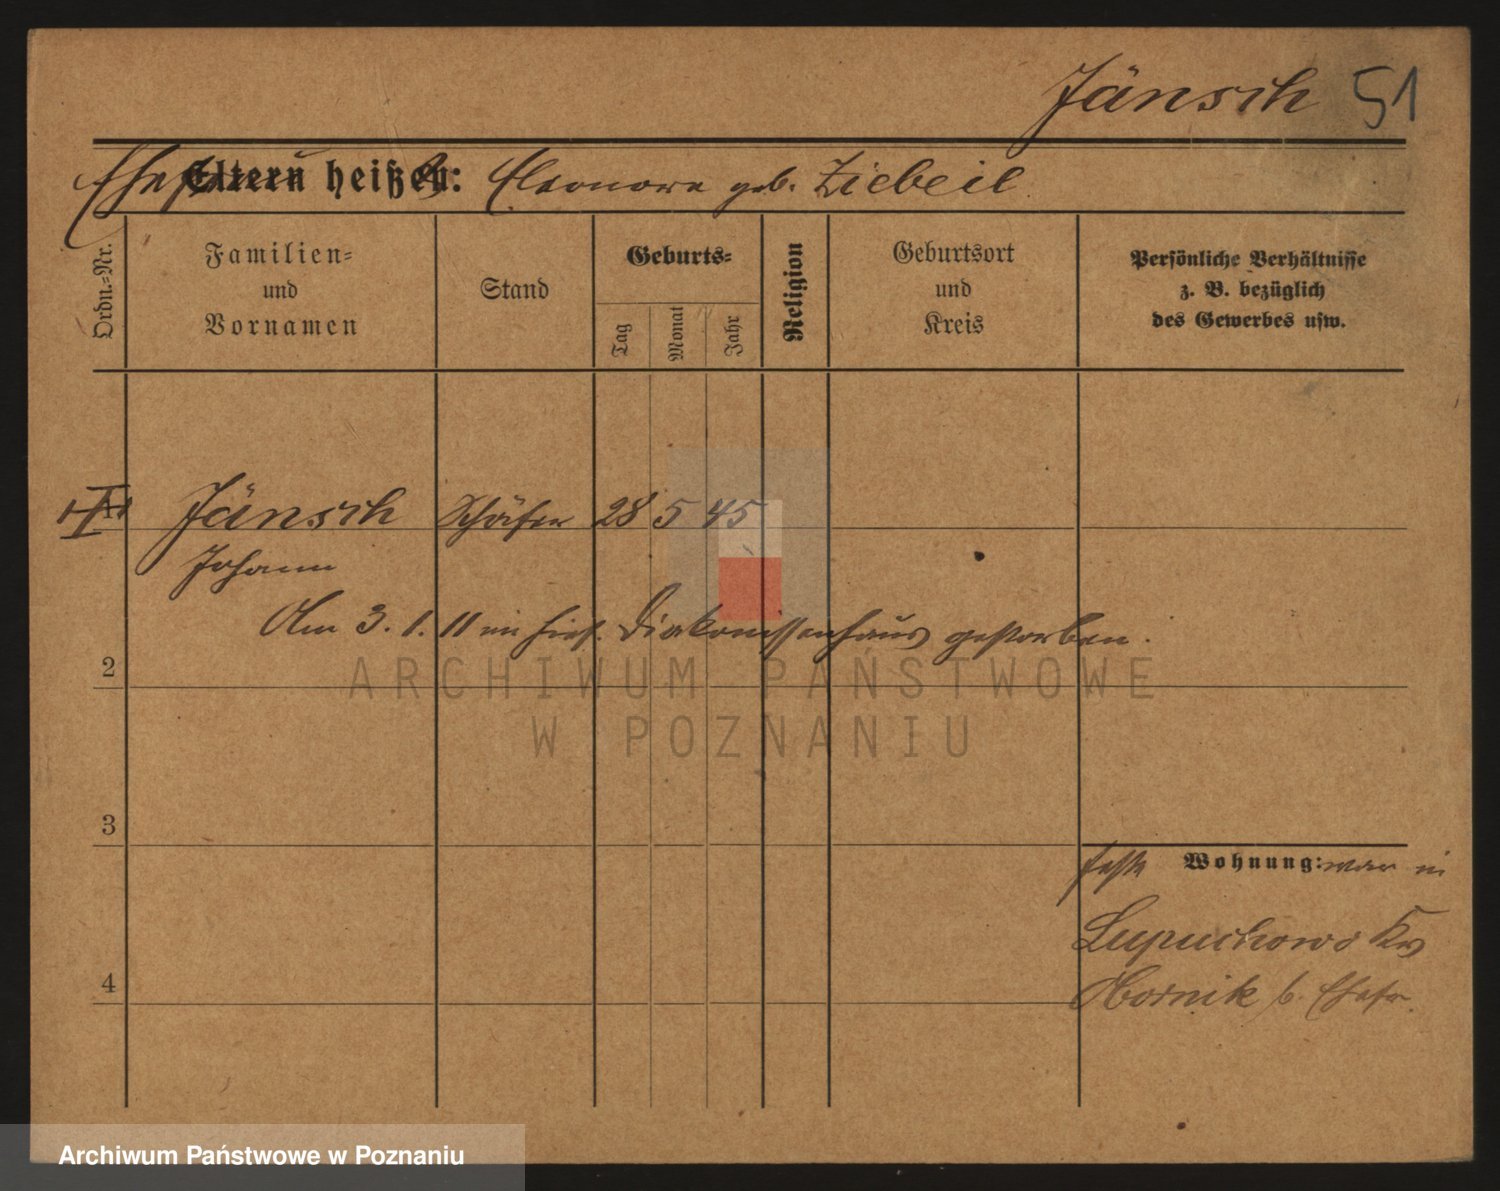 Jänsch 51
Ehefrau
Eltern heißen: Eleonore geb. Ziebeil
Ordn.-Nr.
Familien-
und
Vornamen
Stand
Geburts-
Tag
Monat
Jahr
Religion
Geburtsort
und
Kreis
Persönliche Verhältnisse
z. B. bezüglich
des Gewerbes usw.
1 Jänsch Schäfer 28 5 45
Johann
Am 3. 1. 11 im hies. Diakonissenhaus gestorben.
2
ARCHIWUM PAŃSTWOWE
W POZNANIU
3
feste Wohnung: war in
Lupuchowo Krs
Obornik b. Ehefr.
4
Archiwum Państwowe w Poznaniu